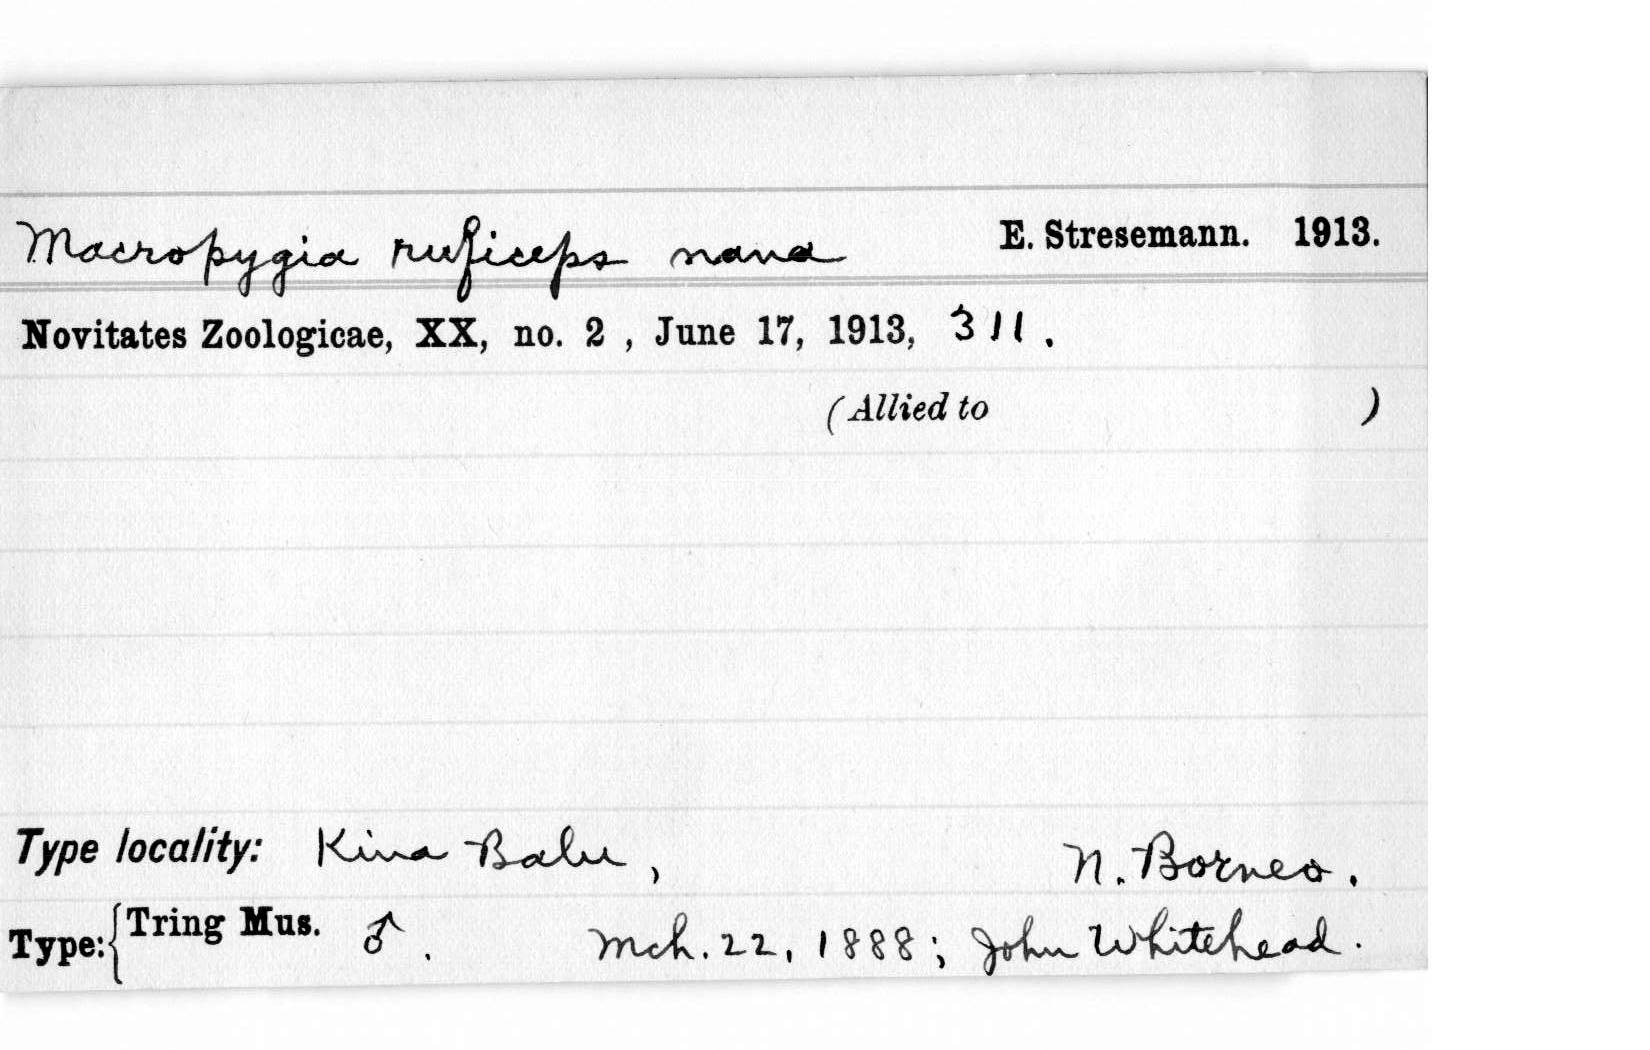 Macropygia ruficeps nana E. Stresemann. 1913.
Novitates Zoologicae, XX, no. 2 , June 17, 1913, 311.
(Allied to )
Type locality: Kina Balu, N. Borneo.
Type: { Tring Mus. ♂. Mch. 22, 1888; John Whitehead.